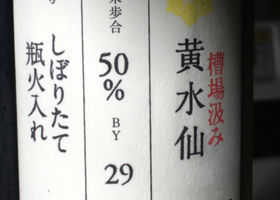 槽場汲み
黄水仙
米歩合
50%
BY
29
しぼりたて
瓶火入れ